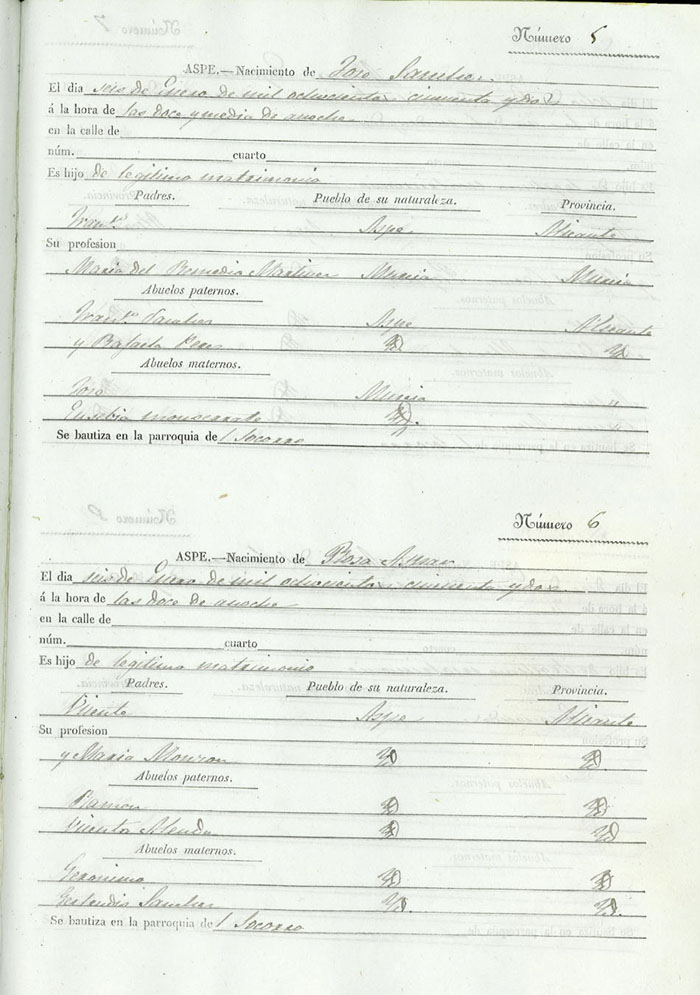 Número 5
ASPE.—Nacimiento de Jose Sanchez
El dia seis de Enero de mil ochocientos cincuenta y dos
á la hora de las doce y media de anoche
en la calle de
núm. cuarto
Es hijo de legitimo matrimonio
Padres. Pueblo de su naturaleza. Provincia.
Franco. Aspe Alicante
Su profesion
Maria del Remedio Martinez Murcia Murcia
Abuelos paternos.
Franco. Sanchez Aspe Alicante
y Rafaela Perez Yd Yd
Abuelos maternos.
Jose Murcia "
Eusebia Monserrate Yd. "
Se bautiza en la parroquia de l Socorro
Número 6
ASPE.—Nacimiento de Rosa
El dia seis de Enero de mil ochocientos cincuenta y dos
á la hora de las doce de anoche
en la calle de
núm. cuarto
Es hijo de legitimo matrimonio
Padres. Pueblo de su naturaleza. Provincia.
Vicente Aspe Alicante
Su profesion
y Maria Monzon Yd Yd
Abuelos paternos.
Ramon Yd Yd
Vicenta Alenda Yd Yd
Abuelos maternos.
Geronimo Yd Yd
Gertrudis Sanchez Yd. Yd.
Se bautiza en la parroquia de l Socorro